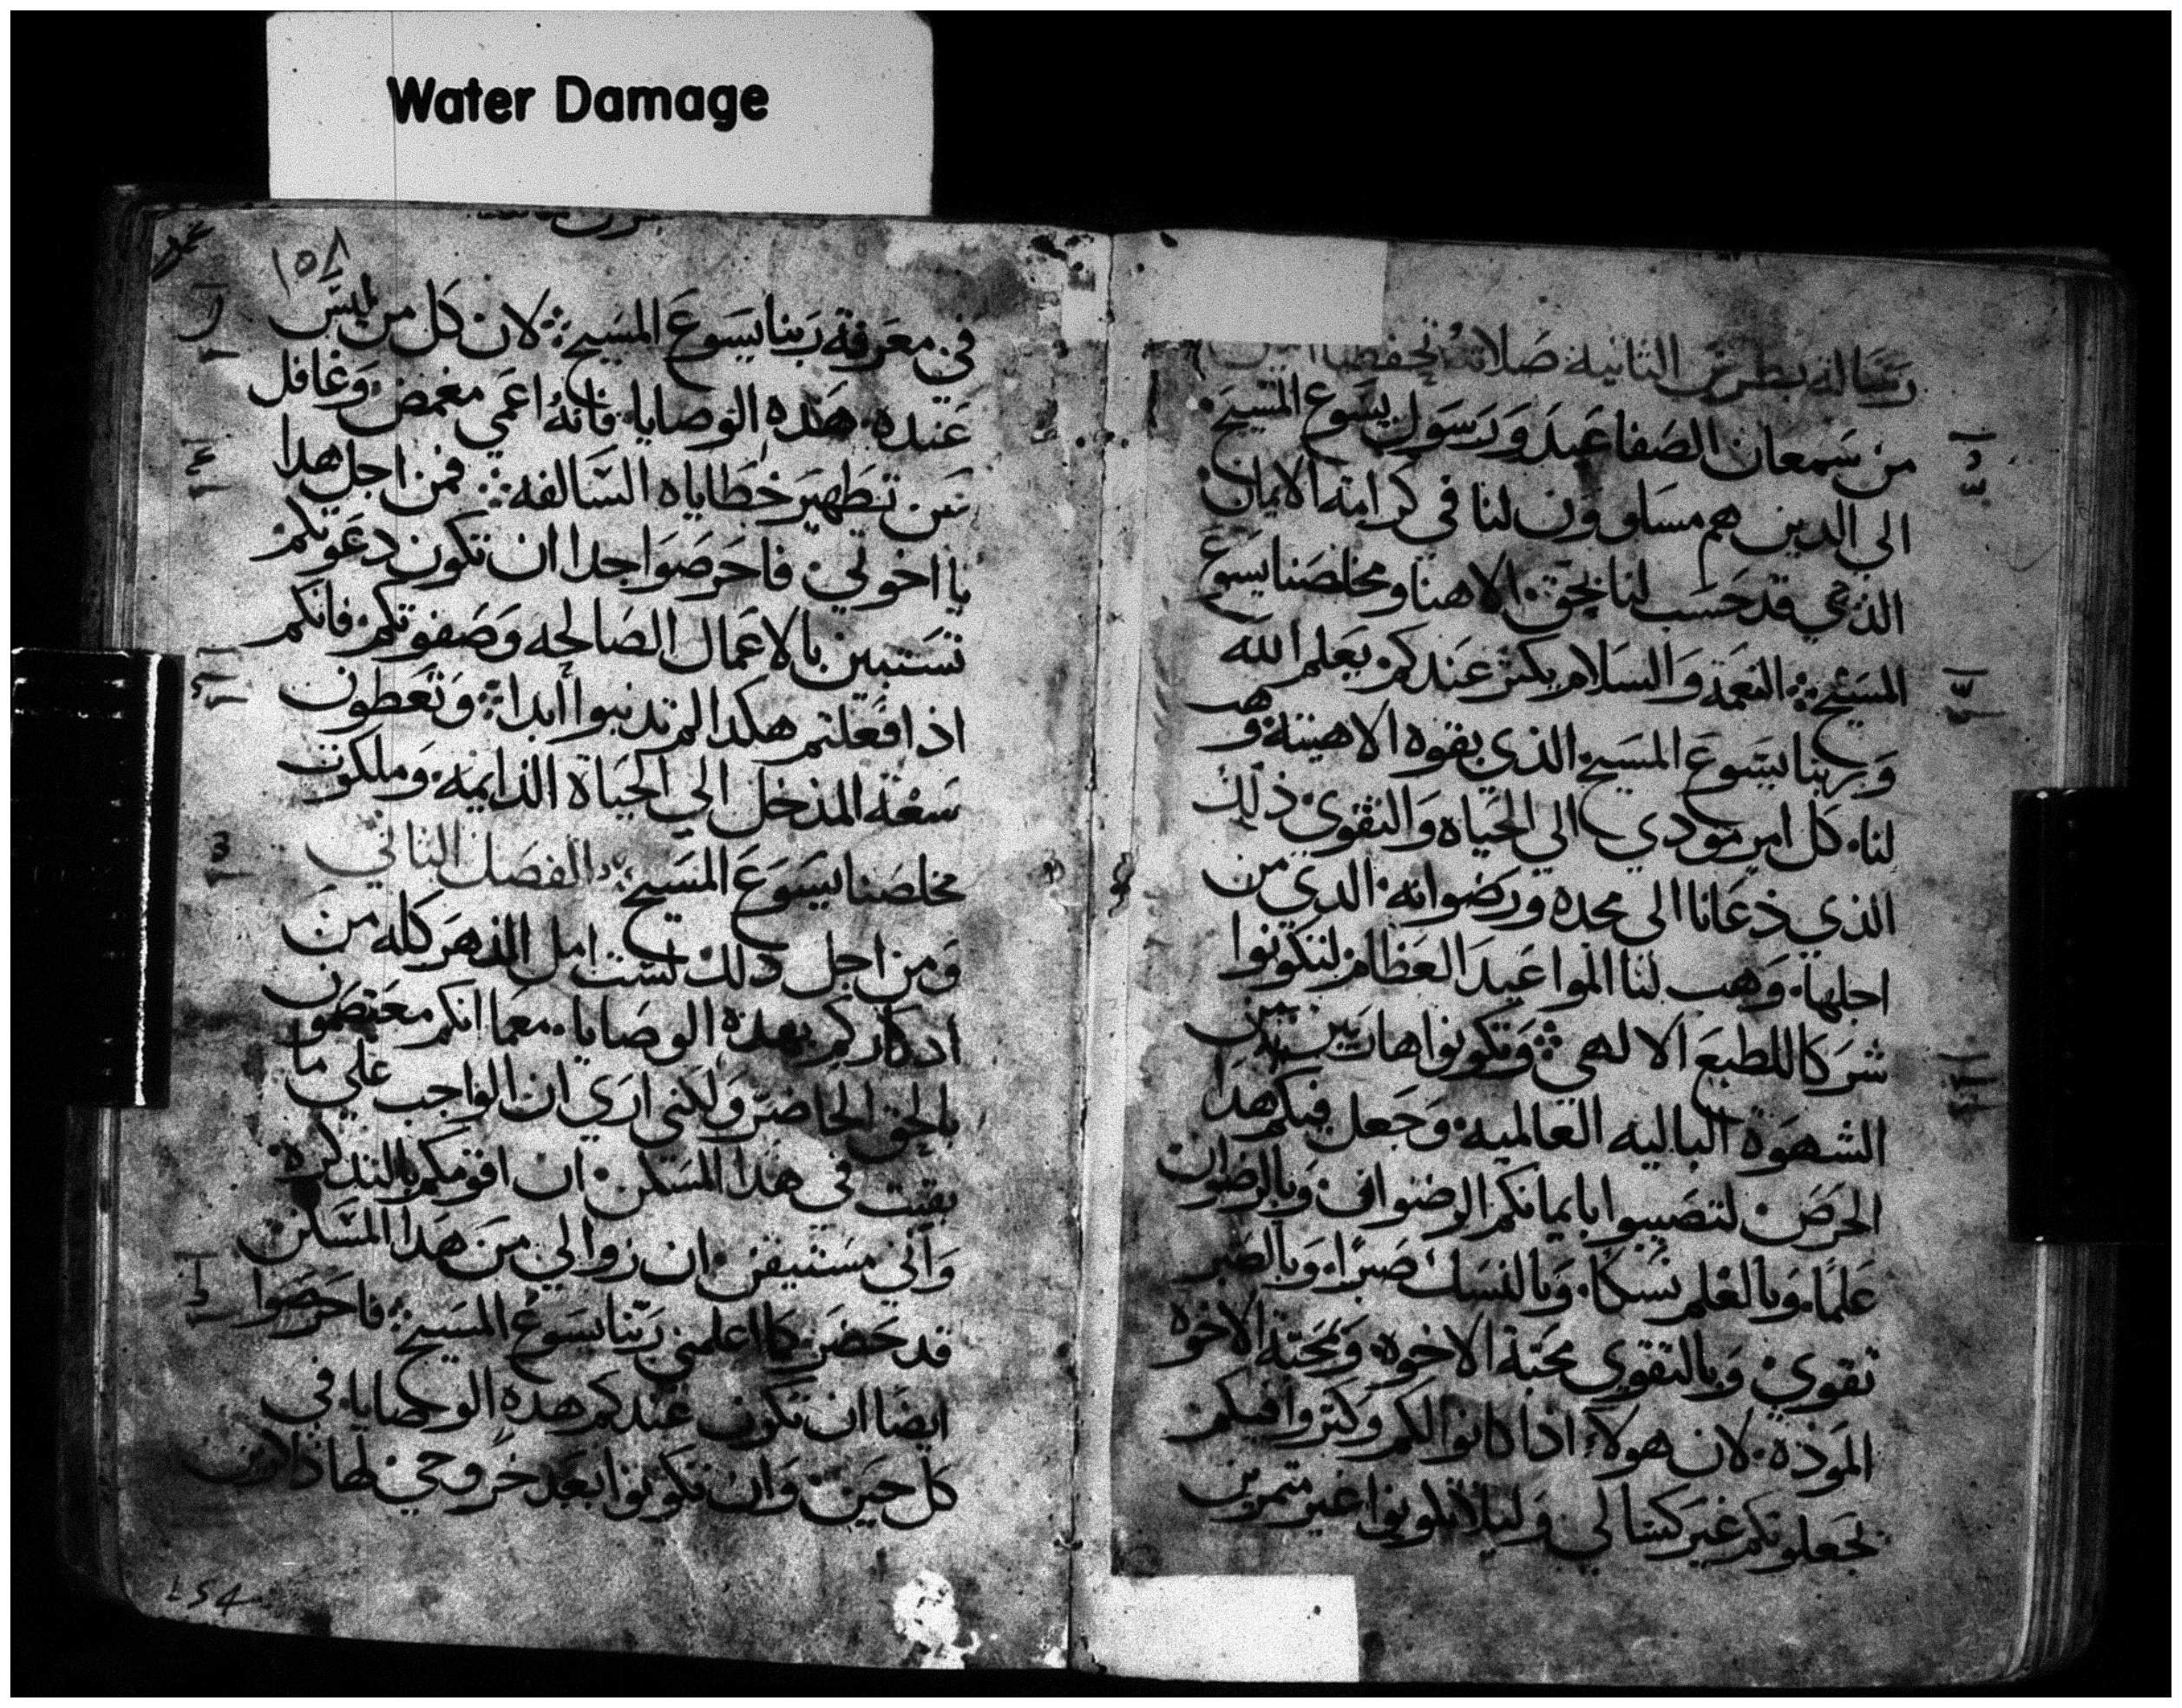 Water Damage
رسالة بطرس الثانية صلاته تحفظنا امين
من سمعان الصفا عبد ورسول يسوع المسيح
الي الدين هم مساوون لنا في كرامة الايمان
الذي قد حسب لنا بحق الاهنا ومخلصنا يسوع
المسيح النعمة والسلام يكثر عندكم بعلم الله
وبربنا يسوع المسيح الذي بقوه الاهيته وهب
لنا كل امر مودي الي الحياه والتقوي ذلك
الذي دعانا الى مجده ورضوانه الدي من
اجلها وهب لنا المواعيد العظام لتكونوا
شركا للطبع الالهي وتكونوا هاربين من
الشهوة الباليه العالميه وجعل فيكم هدا
الحرص لتصيبوا بايمانكم الرضوان وبالرضوان
علما وبالعلم نسكا وبالنسك صبرا وبالصبر
تقوي وبالتقوي محبة الاخوه وبمحبة الاخوه
المودة لان هولاء اذا كانوا لكم وكتروا فيكم
تجعلونكم غير كسالي وليلا تكونوا غير متمرين
١٥٨
في معرفة ربنا يسوع المسيح لان كل من ليس
عنده هده الوصايا فانه اعمي مغمض وغافل
عن تطهير خطاياه السالفه فمن اجل هدا
يا اخوتي فاحرصوا جدا ان تكون دعوتكم
تستبين بالاعمال الصالحه وصفوتكم فانكم
اذا فعلتم هكدا لم تدنبوا ابدا وتعطون
سعة المدخل الي الحياة الدايمه وملكوت
مخلصنا يسوع المسيح الفصل التاني
ومن اجل دلك لست امل الدهر كله من
ادكاركم بهده الوصايا معما انكم معتصمون
بالحق الحاضر ولكني اري ان الواجب علي ما
بقيت في هدا المسكن ان اقومكم بالتدكره
واني مستيقن ان زوالي من هدا المسكن
قد حضر كما اعلمني ربنا يسوع المسيح فاحرصوا
ايضا ان تكون عندكم هده الوصايا في
كل حين وان تكونوا بعد خروجي لها داكرين